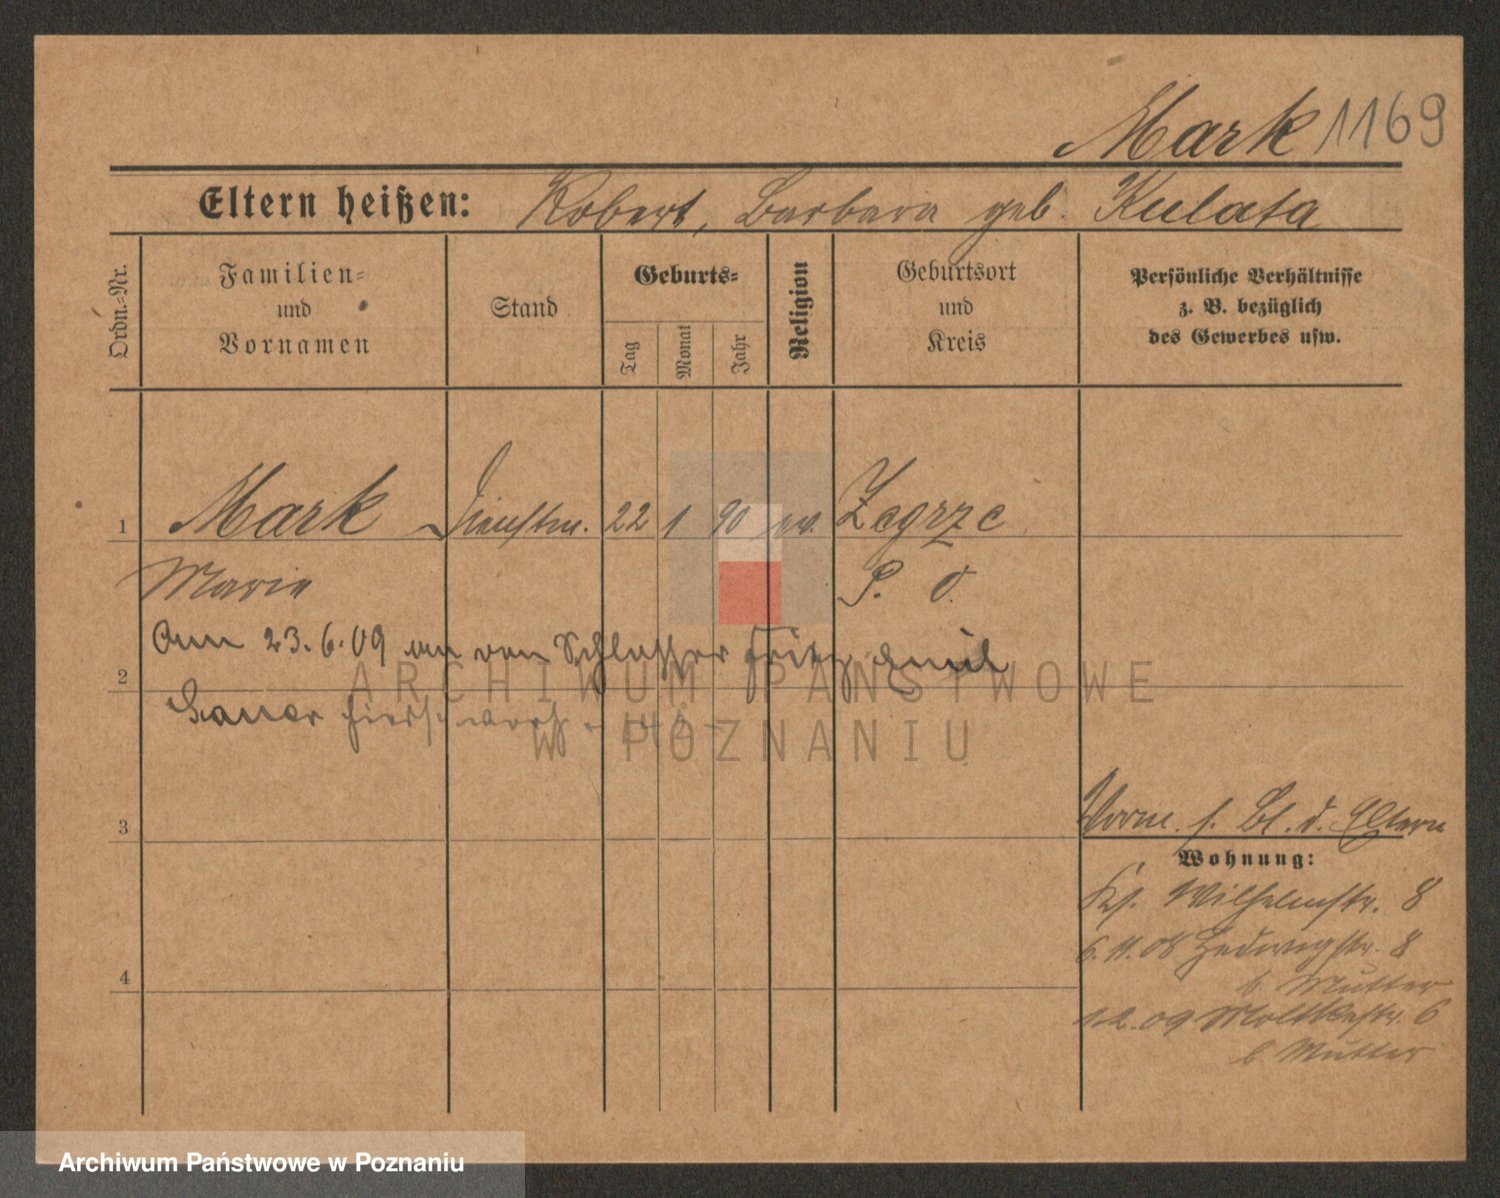 Mark 1169
Eltern heißen: Robert, Barbara geb. Kulata
Ordn.=Nr.
Familien=
und
Vornamen
Stand
Geburts=
Tag
Monat
Jahr
Religion
Geburtsort
und
Kreis
Persönliche Verhältnisse
z. B. bezüglich
des Gewerbes usw.
1 Mark Dienstm. 22 1 90 ev. Zegrze
Marie P. O.
Am 23.6.09 an den Schlosser Fritz Emil
2
Sauer hierse
ARCHIWUM PAŃSTWOWE
W POZNANIU
3
Vorm. s. Bl. d. Eltern
Wohnung:
Ks. Wilhelmstr. 8
6.11.08 Hedwigstr. 8
b. Mutter
4
1.2.09 Moltkestr. 6
b. Mutter
Archiwum Państwowe w Poznaniu